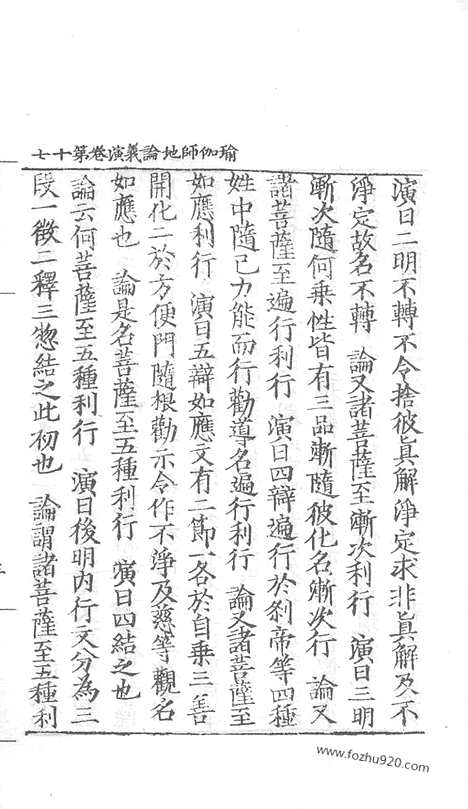 瑜伽師地論義演卷第十七
演曰二明不轉不令捨彼眞解淨定求非眞解及不
淨定故名不轉 論又諸菩薩至漸次利行 演曰三明
漸次隨何乗性皆有三品漸隨彼化名漸次行 論又
諸菩薩至遍行利行 演曰四辯遍行於刹帝等四種
姓中隨己力能而行勸導名遍行利行 論又諸菩薩至
如應利行 演曰五辯如應文有二節一各於自乗三善
開化二於方便門隨根勸示令作不淨及慈等觀名
如應也 論是名菩薩至五種利行 演曰四結之也
論云何菩薩至五種利行 演曰後明内行文分為三
段一徵二釋三惣結之此初也 論謂諸菩薩至五種利
www.fozhu920.com